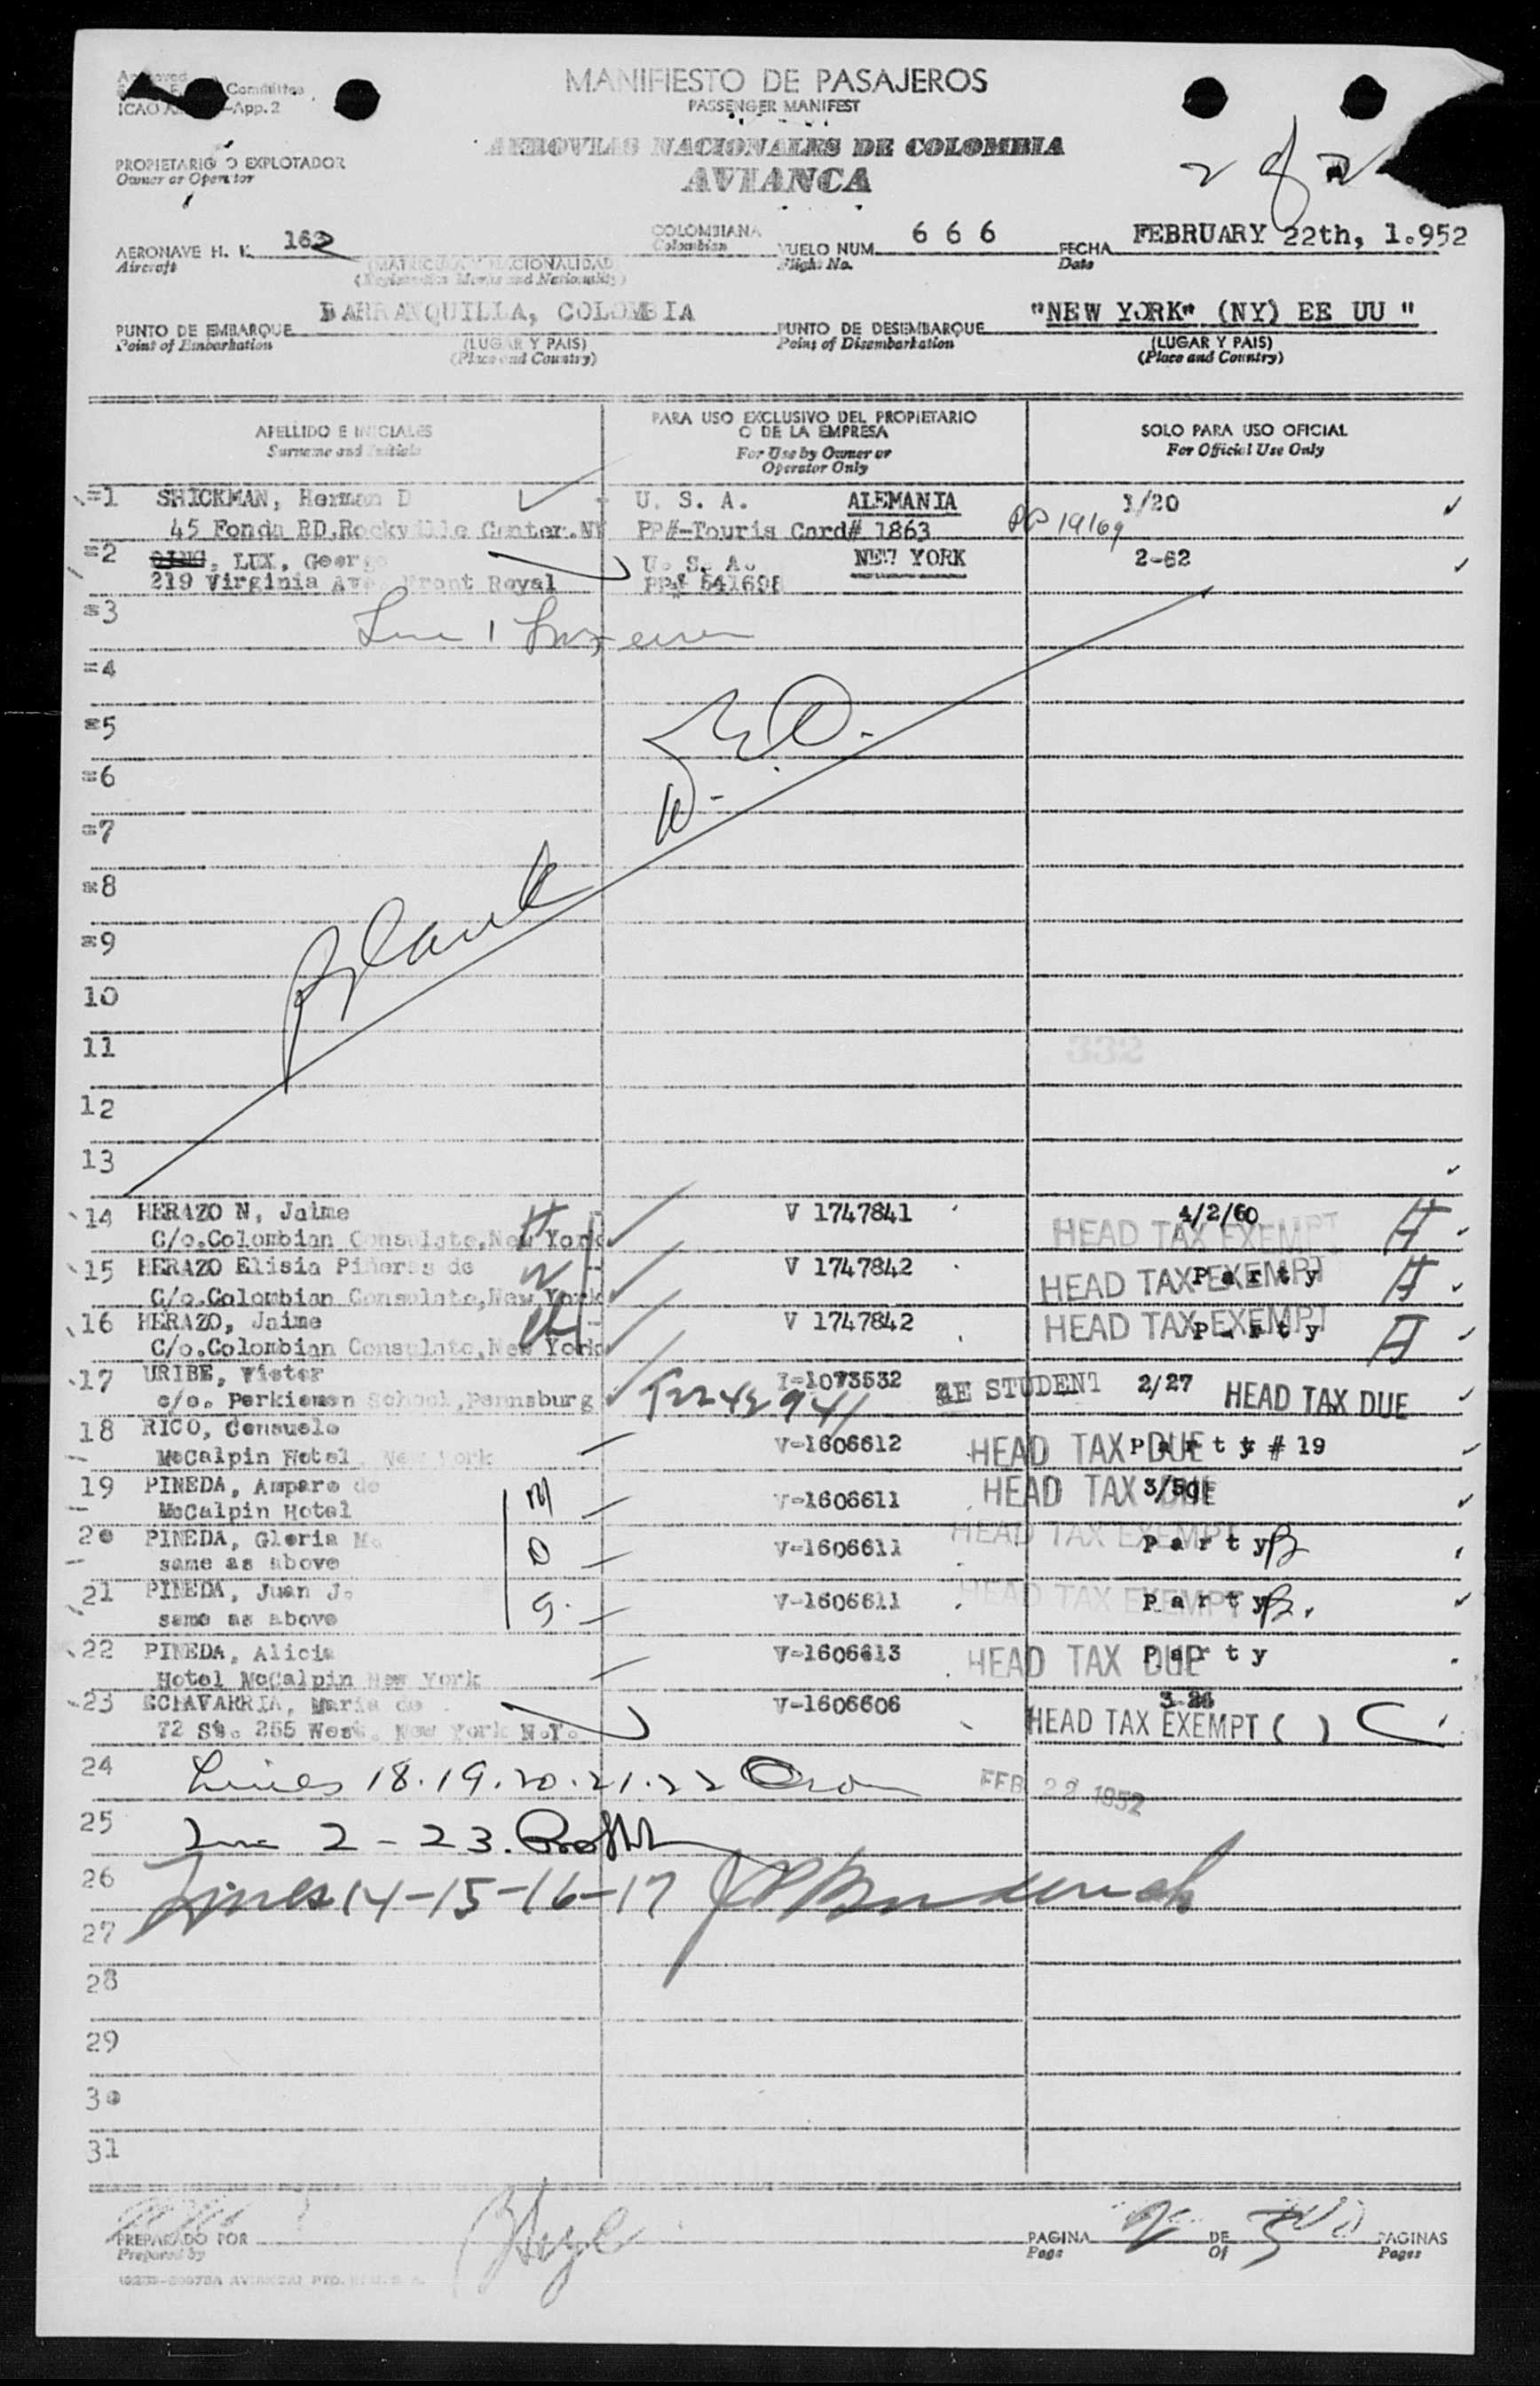 MANIFIESTO DE PASAJEROS
PASSENGER MANIFEST
Approved
Committee
ICAO
-App. 2
AEROVIAS NACIONALES DE COLOMBIA
AVIANCA
PROPIETARIO O EXPLOTADOR
Owner or Operator
2 of 2
AERONAVE H. K. 162
Aircraft
(MATRICULA Y NACIONALIDAD)
(Registration Marks and Nationality)
COLOMBIANA
Colombian
VUELO NUM. 6 6 6
Flight No.
FECHA FEBRUARY 22th, 1.952
Date
PUNTO DE EMBARQUE BARRANQUILLA, COLOMBIA
Point of Embarkation
(LUGAR Y PAIS)
(Place and Country)
PUNTO DE DESEMBARQUE "NEW YORK" (NY) EE UU "
Point of Disembarkation
(LUGAR Y PAIS)
(Place and Country)
APELLIDO E INICIALES
Surname and Initials
PARA USO EXCLUSIVO DEL PROPIETARIO
O DE LA EMPRESA
For Use by Owner or
Operator Only
SOLO PARA USO OFICIAL
For Official Use Only
=1 SHICKMAN, Herman D U. S. A. ALEMANIA 1/20
45 Fonda RD.Rockville Center.NY PP#-Touris Card# 1863 PP 19169
=2 , LUX, George U. S. A. NEW YORK 2-62
219 Virginia Ave. Front Royal PP# 541698
=3
Line 1
=4
=5
=6
=7
=8
=9
Blank
10
11
332
12
13
14 HERAZO N, Jaime V 1747841 4/2/60
C/o.Colombian Consulate,New York HEAD TAX EXEMPT
15 HERAZO Elisia Piñeres de V 1747842 Party
C/o.Colombian Consulate,New York HEAD TAX EXEMPT
16 HERAZO, Jaime V 1747842 Party
C/o.Colombian Consulate,New York HEAD TAX EXEMPT
17 URIBE, Victor I-1073532 4E STUDENT 2/27 HEAD TAX DUE
c/o. Perkiomen School,Pennsburg T2242941
18 RICO, Consuelo V-1606612 HEAD TAX DUE Party # 19
McCalpin Hotel, New York
19 PINEDA, Amparo de V-1606611 HEAD TAX DUE 3/50
McCalpin Hotel M
20 PINEDA, Gloria M. V-1606611 HEAD TAX EXEMPT Party
same as above D
21 PINEDA, Juan J. V-1606611 HEAD TAX EXEMPT Party
same as above S.
22 PINEDA, Alicia V-1606613 HEAD TAX DUE Party
Hotel McCalpin New York
23 ECHAVARRIA, Maria de V-1606606 3-26
72 St. 255 West. New York N.Y. HEAD TAX EXEMPT ( )
24 Lines 18.19.20.21.22
FEB 22 1952
25 Line 2 - 23.
26 Lines 14-15-16-17
27
28
29
30
31
PREPARADO POR
Prepared by
PAGINA 2 DE PAGINAS
Page Of Pages